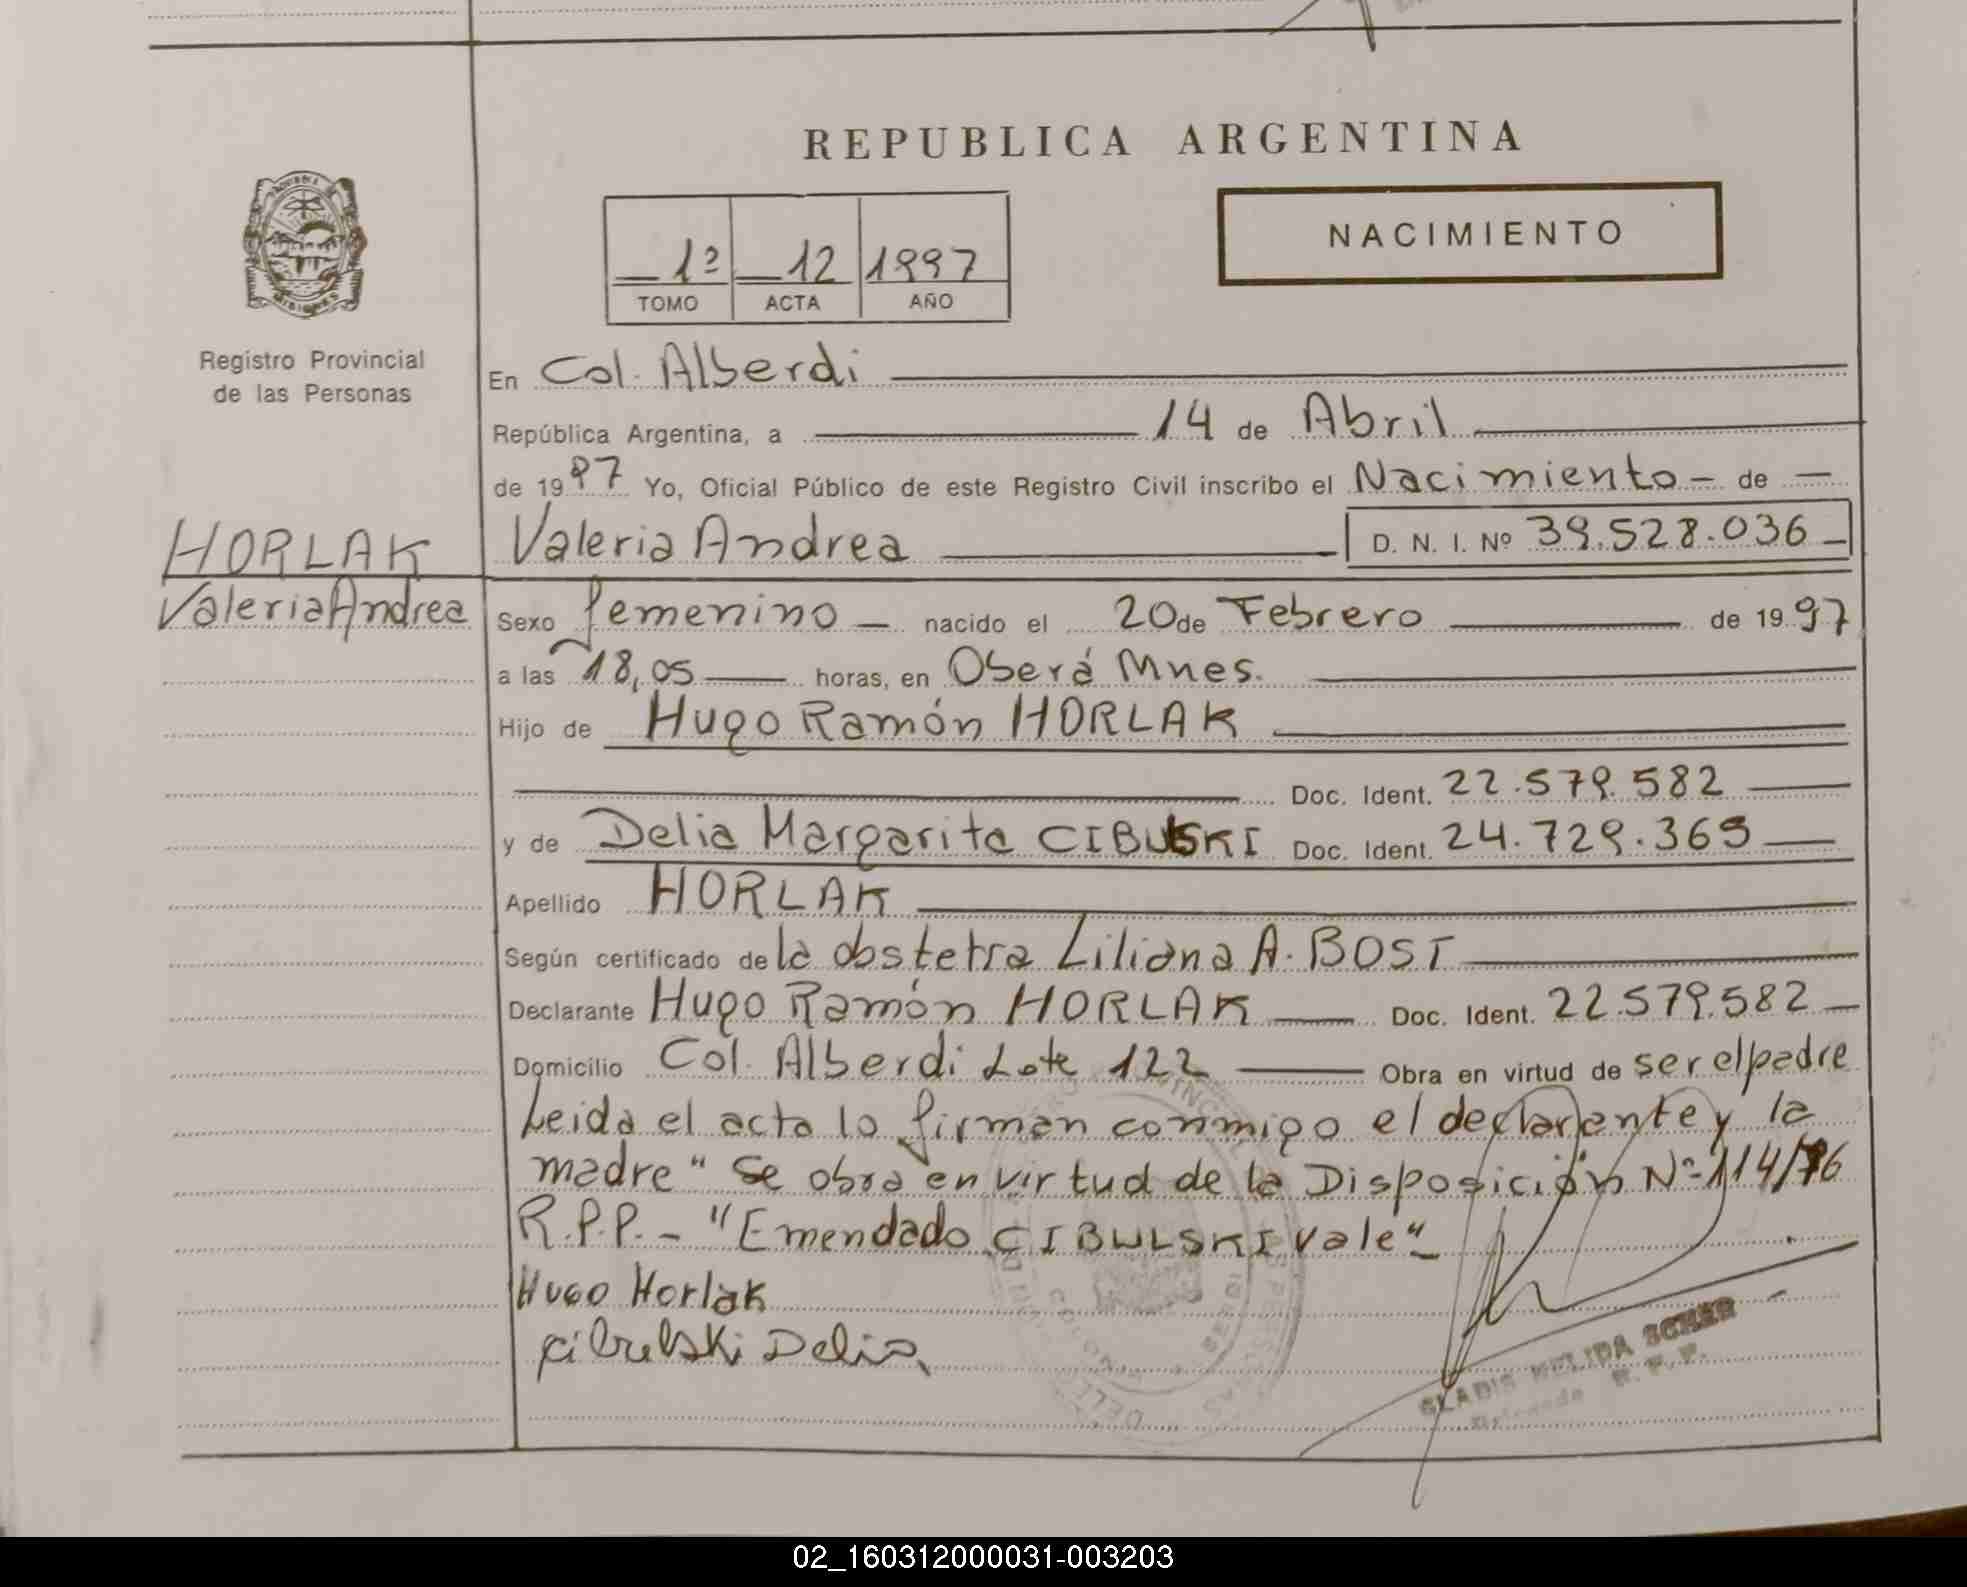 REPUBLICA ARGENTINA
1º 12 1997
TOMO ACTA AÑO
NACIMIENTO
Registro Provincial
de las Personas
En Col. Alberdi
República Argentina, a 14 de Abril
de 1997 Yo, Oficial Público de este Registro Civil inscribo el Nacimiento - de
HORLAK
Valeria Andrea
Valeria Andrea D. N. I. Nº 39.528.036
Sexo femenino nacido el 20 de Febrero de 1997
a las 18,05 horas, en Oberá Mnes.
Hijo de Hugo Ramón HORLAK
Doc. Ident. 22.579.582
y de Delia Margarita CIBULSKI Doc. Ident. 24.729.369
Apellido HORLAK
Según certificado de la obstetra Liliana A. BOST
Declarante Hugo Ramón HORLAK Doc. Ident. 22.579.582
Domicilio Col. Alberdi Lote 122 Obra en virtud de ser el padre
Leida el acta lo firman conmigo el declarante y la
madre" Se obra en virtud de la Disposición Nº 114/76
R.P.P. - "Emendado CIBULSKI Vale"
Hugo Horlak
Cibulski Delia
GLADIS NELIDA SCHER
R. P. P.
02_160312000031-003203